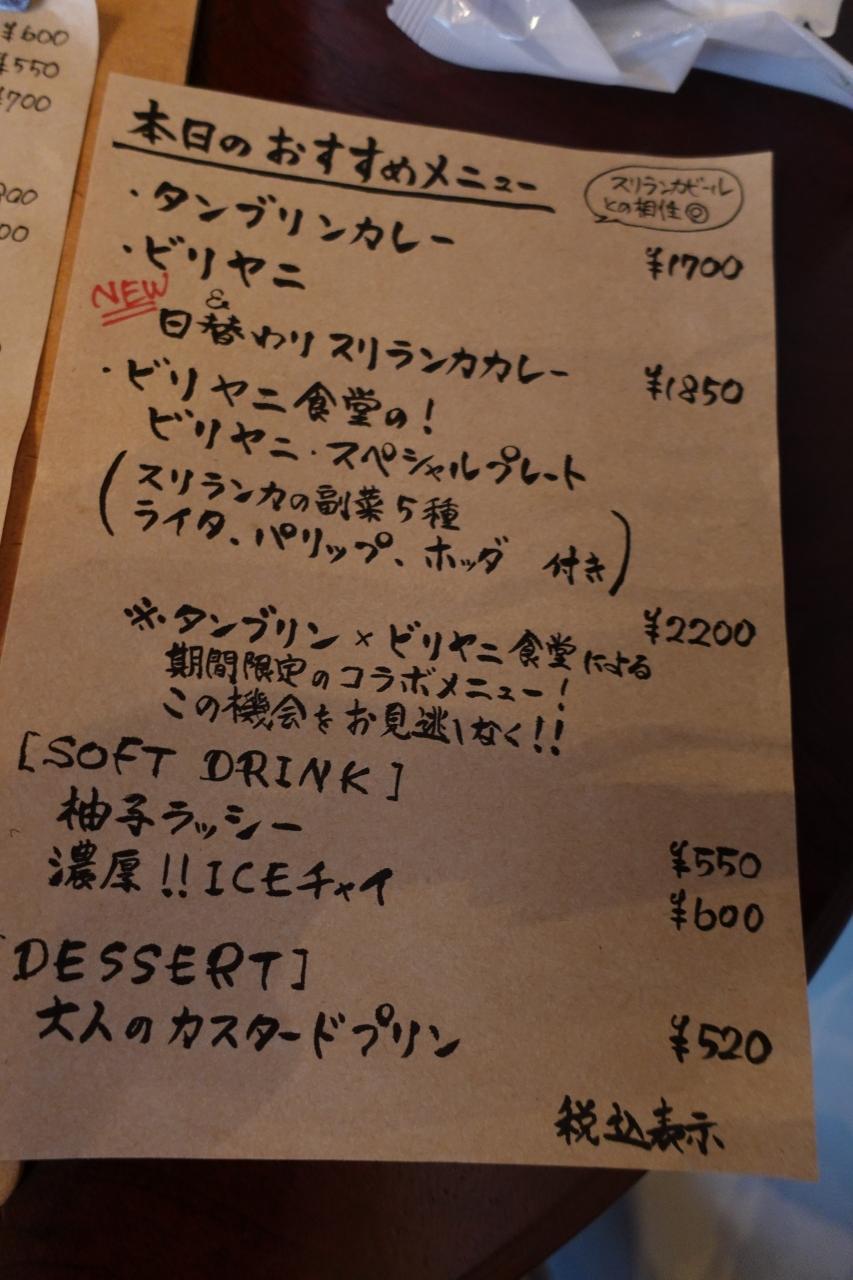 ¥600
¥550
¥700
00
本日のおすすめメニュー
スリランカビール
との相性◎
・タンブリンカレー
¥1700
・ビリヤニ
NEW
&
日替わりスリランカカレー
¥1850
・ビリヤニ食堂の!
ビリヤニ・スペシャルプレート
(スリランカの副菜5種
ライタ、パリップ、ホッダ 付き)
¥2200
※タンブリン×ビリヤニ食堂による
期間限定のコラボメニュー!
この機会をお見逃しなく!!
[SOFT DRINK]
柚子ラッシー
¥550
濃厚!!ICEチャイ
¥600
[DESSERT]
大人のカスタードプリン
¥520
税込表示